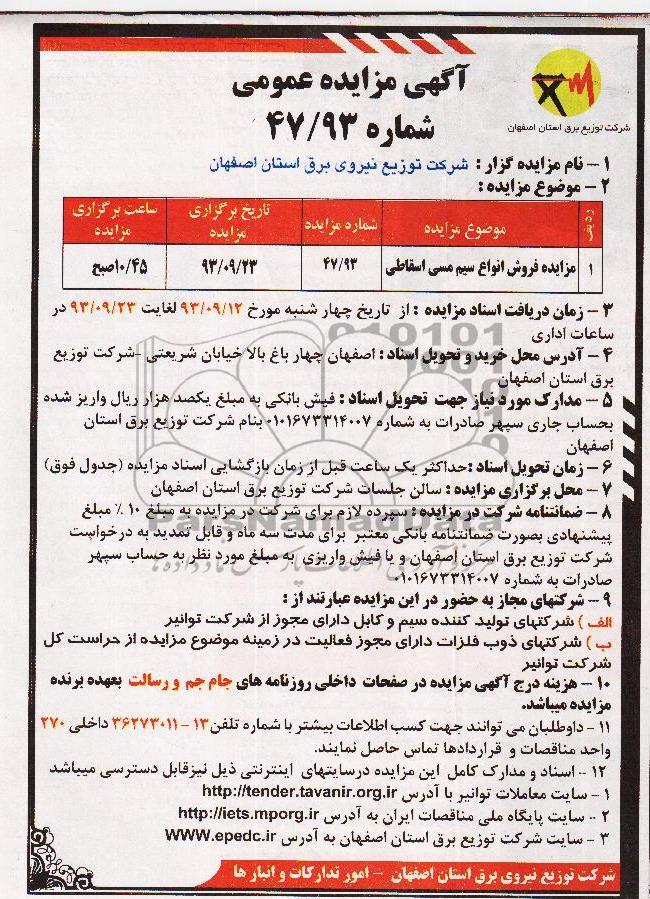 آگهی مزایده عمومی
شماره ۴۷/۹۳
شرکت توزیع برق استان اصفهان
۱ – نام مزایده گزار : شرکت توزیع نیروی برق استان اصفهان
۲ – موضوع مزایده :
ردیف موضوع مزایده شماره مزایده تاریخ برگزاری مزایده ساعت برگزاری مزایده
۱ مزایده فروش انواع سیم مسی اسقاطی ۴۷/۹۳ ۹۳/۰۹/۲۳ ۱۰/۴۵صبح
۳ – زمان دریافت اسناد مزایده : از تاریخ چهار شنبه مورخ ۹۳/۰۹/۱۲ لغایت ۹۳/۰۹/۲۳ در
ساعات اداری
۴ – آدرس محل خرید و تحویل اسناد : اصفهان چهار باغ بالا خیابان شریعتی -شرکت توزیع
برق استان اصفهان
۵ – مدارک مورد نیاز جهت تحویل اسناد : فیش بانکی به مبلغ یکصد هزار ریال واریز شده
بحساب جاری سپهر صادرات به شماره ۰۱۰۱۶۷۳۳۱۴۰۰۷ بنام شرکت توزیع برق استان
اصفهان
۶ – زمان تحویل اسناد :حداکثر یک ساعت قبل از زمان بازگشایی اسناد مزایده (جدول فوق)
۷ – محل برگزاری مزایده : سالن جلسات شرکت توزیع برق استان اصفهان
۸ – ضمانتنامه شرکت در مزایده : سپرده لازم برای شرکت در مزایده به مبلغ ۱۰ ٪ مبلغ
پیشنهادی بصورت ضمانتنامه بانکی معتبر برای مدت سه ماه و قابل تمدید به درخواست
شرکت توزیع برق استان اصفهان و یا فیش واریزی به مبلغ مورد نظر به حساب سپهر
صادرات به شماره ۰۱۰۱۶۷۳۳۱۴۰۰۷
۹ – شرکتهای مجاز به حضور در این مزایده عبارتند از :
الف ) شرکتهای تولید کننده سیم و کابل دارای مجوز از شرکت توانیر
ب ) شرکتهای ذوب فلزات دارای مجوز فعالیت در زمینه موضوع مزایده از حراست کل
شرکت توانیر
۱۰ – هزینه درج آگهی مزایده در صفحات داخلی روزنامه های جام جم و رسالت بعهده برنده
مزایده میباشد.
۱۱ – داوطلبان می توانند جهت کسب اطلاعات بیشتر با شماره تلفن ۱۳ – ۳۶۲۷۳۰۱۱ داخلی ۲۷۰
واحد مناقصات و قراردادها تماس حاصل نمایند.
۱۲ -- اسناد و مدارک کامل این مزایده درسایتهای اینترنتی ذیل نیزقابل دسترسی میباشد
۱ – سایت معاملات توانیر با آدرس http://tender.tavanir.org.ir
۲ -- سایت پایگاه ملی مناقصات ایران به آدرس http://iets.mporg.ir
۳ – سایت شرکت توزیع برق استان اصفهان به آدرس WWW.epedc.ir
شرکت توزیع نیروی برق استان اصفهان – امور تدارکات و انبار ها
ParsNamadData